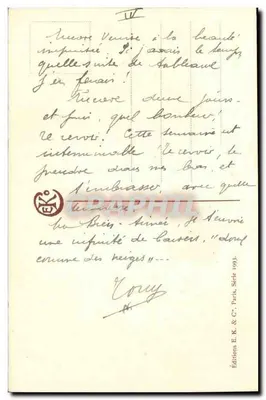 IV
Encore Venise à la beauté
infinie. Si j'avais le temps
quelle suite de tableaux
j'en ferais !
Encore deux jours
et puis, quel bonheur,
te revoir. Cette semaine est
interminable. Te revoir, te
prendre dans mes bras, et
t'embrasser, avec quelle
EK
Bien-Aimée, je t'envoie
une infinité de baisers, "doux
comme des neiges"...
Tony
Éditions E. K. & Cie, Paris, Série 1093.